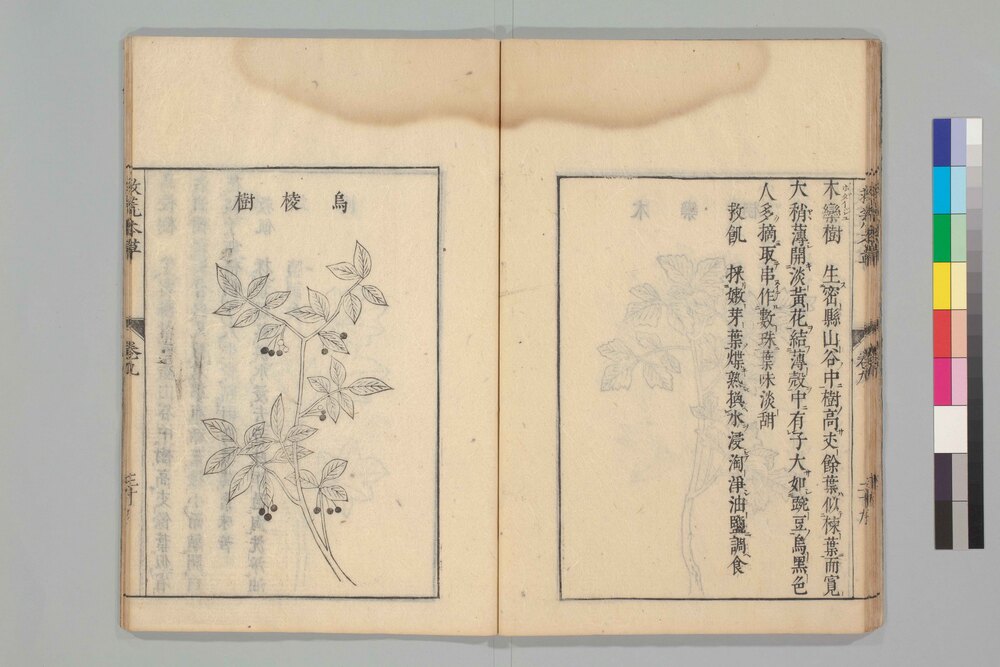 木欒樹 生密縣山谷中樹高丈餘葉似楝葉而寛
大稍薄開淡黃花結薄殼中有子大如豌豆烏黑色
人多摘取串作數珠葉味淡甜
救飢 採嫩芽葉煠熟換水浸淘淨油鹽調食
烏棱樹
救荒本草
卷九